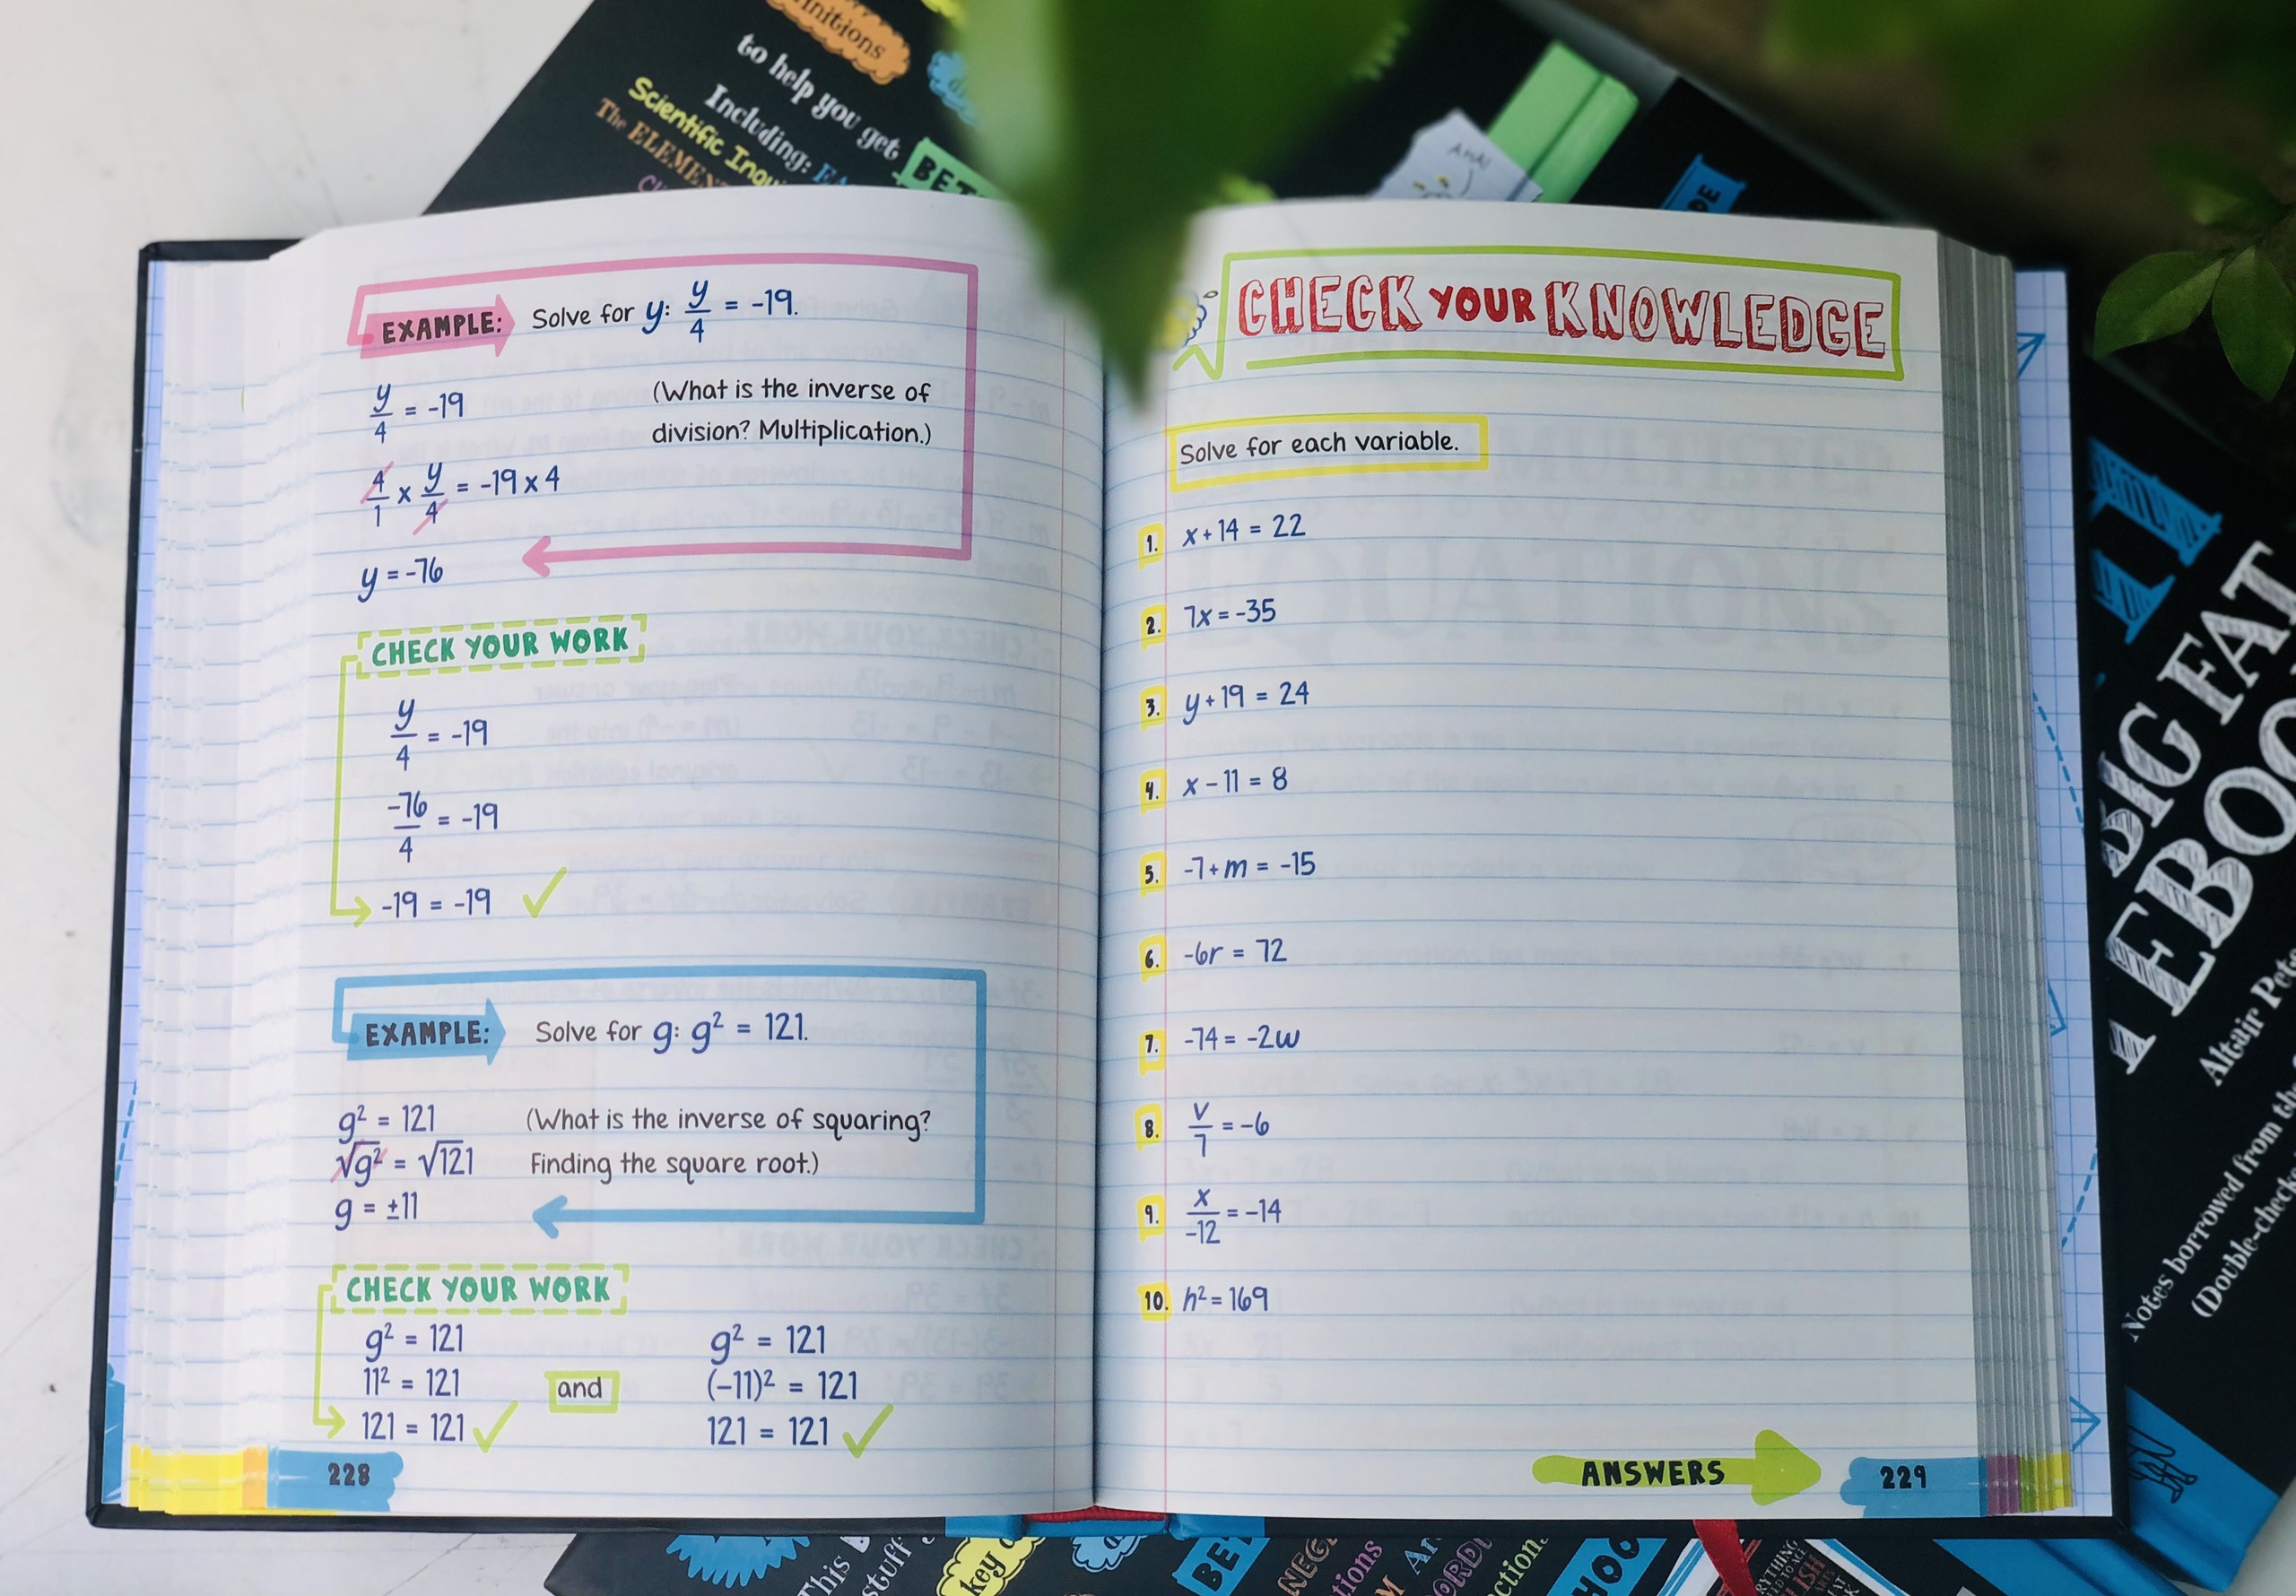 initions
to help you get
BET
Including: EA
Scientific Inqu
The ELEMEN
AHA!
EXAMPLE: Solve for y: y/4 = -19.
y/4 = -19 (What is the inverse of
division? Multiplication.)
4/1 x y/4 = -19 x 4
y = -76
CHECK YOUR WORK
y/4 = -19
-76/4 = -19
-19 = -19 ✓
EXAMPLE: Solve for g: g² = 121.
g² = 121 (What is the inverse of squaring?
√g² = √121 Finding the square root.)
g = ±11
CHECK YOUR WORK
g² = 121 g² = 121
11² = 121 and (-11)² = 121
121 = 121 ✓ 121 = 121 ✓
228
CHECK YOUR KNOWLEDGE
Solve for each variable.
1. x + 14 = 22
2. 7x = -35
3. y + 19 = 24
4. x - 11 = 8
5. -7 + m = -15
6. -6r = 72
7. -74 = -2w
8. v/7 = -6
9. x/-12 = -14
10. h² = 169
ANSWERS
229
BIG FAT
EBOO
Altair Pete
Notes borrowed from the
(Double-check
This
stuff
key
BET
tions
ction.